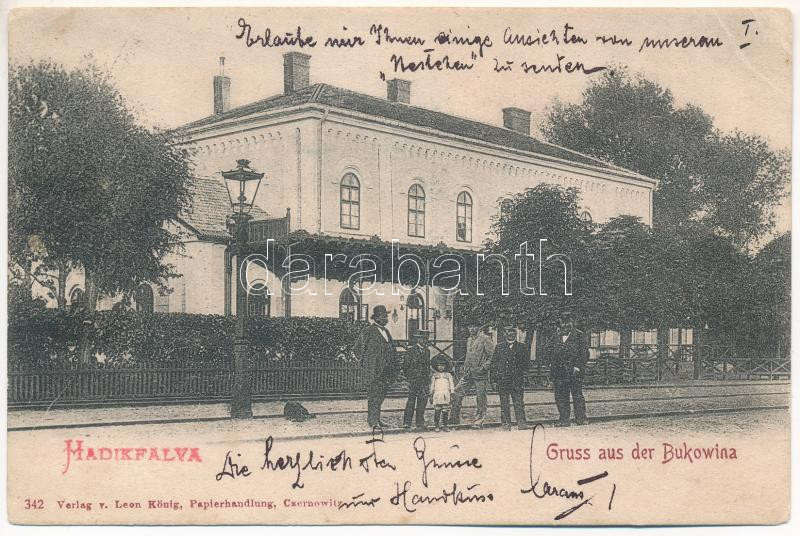 Erlaube mir Ihnen einige Ansichten von unseran I.
"Nestchen" zu senden
darabanth
HADIKFALVA
Gruss aus der Bukowina
Die herzlichsten Grüsse
nur Handkuss
342 Verlag v. Leon König, Papierhandlung, Czernowitz